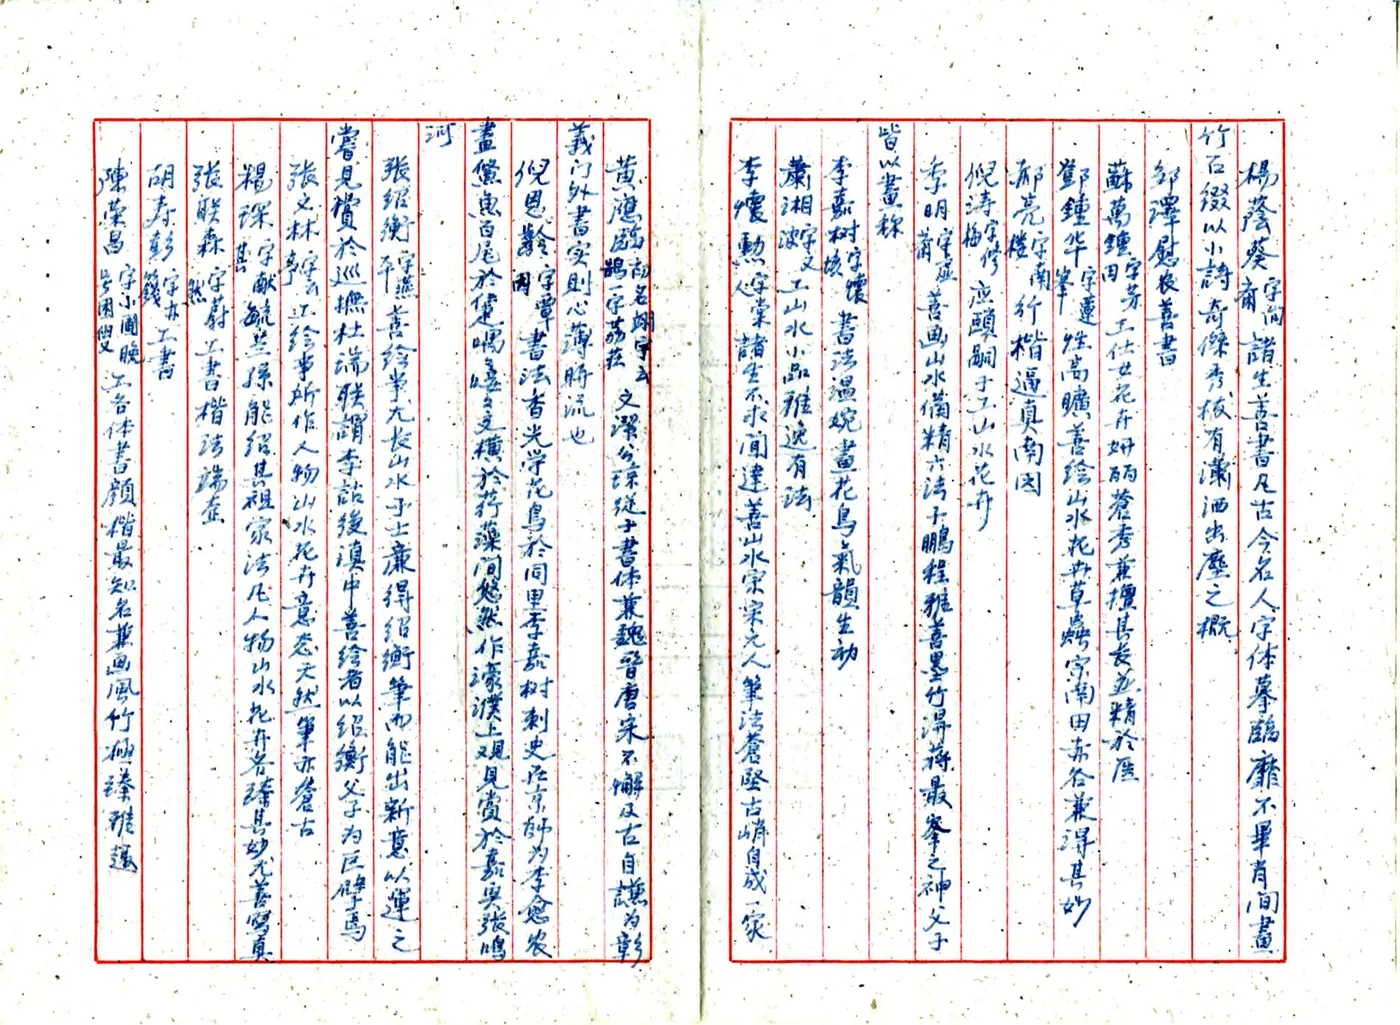 楊蔭葵字向甫諸生善書凡古今名人字体摹臨靡不畢肖間畫
竹石缀以小詩奇傑秀拔有瀟洒出塵之概
鄒澤慰農善書
蘇萬鍾字芳田工仕女花卉妍丽蒼秀兼擅其長並精於医
鄧鍾华字蓮峯性高曠善绘山水花卉草蟲宗南田亦各兼得其妙
郝亮字南樓行楷逼真南园
倪涛字修梅应頤嗣子工山水花卉
李明字星甫善画山水備精六法子鵬程雅善墨竹得蒋最峯之神父子
皆以畫称
李嘉树字懷核書法温婉畫花鸟氣韻生动
蕭湘字又波工山水小品雅逸有法
李懷勲字棠人諸生不求聞達善山水宗宋元人筆法蒼堅古峭自成一家
黄應鶴初名翊字云鵠一字荔莊文潔公琮從子書体兼魏晉唐宋不懈及古自謙为彰
義门外書实则心薄時流也
倪恩齡字覃园書法香光学花鸟於同里李嘉树刺史在京師为李愈农
畫鯈魚百尾於健喁嬉之文横於荇藻间悠然作濠濮上观見赏於嘉興张鳴
河
张绍衡字燕平善绘事尤长山水子士廉得绍衡筆而能出新意以運之
嘗見獎於巡撫杜瑞联謂李詁後滇中善绘者以绍衡父子为巨擘焉
张文林字云亭工绘事所作人物山水花卉意态天然筆亦蒼古
楊琛字献其毓兰孫能绍其祖家法凡人物山水花卉各瑧其妙尤善寫真
张联森字蔚然工書楷法端庄
胡寿彭字亦籛工書
陳荣昌字小圃晚号困叟工各体書顔楷最知名兼画風竹極瑧雅逸